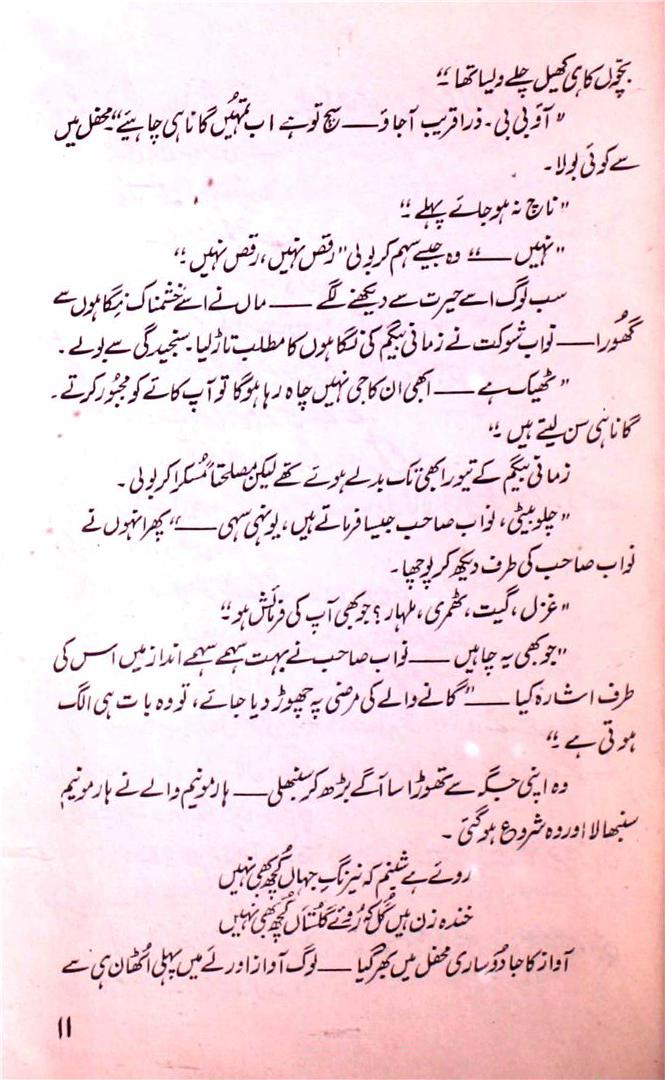 بچّوں کا ہی کھیل چلے ویسا تھا ؎“
” آؤ بی بی ۔ ذرا قریب آ جاؤ ــــ سچ تو ہے اب تمہیں گانا ہی چاہیئے “۔ محفل میں
سے کوئی بولا ۔
” ناچ نہ ہو جائے پہلے ؟“
” نہیں ــــ “ وہ جیسے سہم کر بولی ” رقص نہیں ، رقص نہیں ۔“
سب لوگ اسے حیرت سے دیکھنے لگے ــــ ماں نے اسے خشمناک نگاہوں سے
گھُورا ــــ نواب شوکت نے زمانی بیگم کی نگاہوں کا مطلب تاڑ لیا ۔ سنجیدگی سے بولے ۔
” ٹھیک ہے ــــ ابھی ان کا جی نہیں چاہ رہا ہو گا تو آپ کاہے کو مجبُور کرتے ۔
گانا ہی سن لیتے ہیں ۔“
زمانی بیگم کے تیور ابھی تک بدلے ہوئے تھے لیکن مصلحتاً مُسکرا کر بولی ۔
” چلو بیٹی ، نواب صاحب جیسا فرماتے ہیں ، یونہی سہی ــــ “ پھر انہوں نے
نواب صاحب کی طرف دیکھ کر پوچھا ۔
” غزل ، گیت ، ٹھمری ، ملہار ؟ جو بھی آپ کی فرمائش ہو ۔“
” جو بھی یہ چاہیں ــــ نواب صاحب نے بہت سہمے سہمے انداز میں اس کی
طرف اشارہ کیا ــــ ” گانے والے کی مرضی پہ چھوڑ دیا جائے ، تو وہ بات ہی الگ
ہوتی ہے ۔“
وہ اپنی جگہ سے تھوڑا سا آگے بڑھ کر سنبھلی ــــ ہارمونیم والے نے ہارمونیم
سنبھالا اور وہ شروع ہو گئی ۔
روئے ہے شبنم کہ نیرنگِ جہاں کُچھ بھی نہیں
خندہ زن ہیں گُل کہ رُوئے گلستاں کُچھ بھی نہیں
آواز کا جادُو ساری محفل میں بھر گیا ــــ لوگ آواز اور لَے میں پہلی اُٹھان ہی سے
۱۱